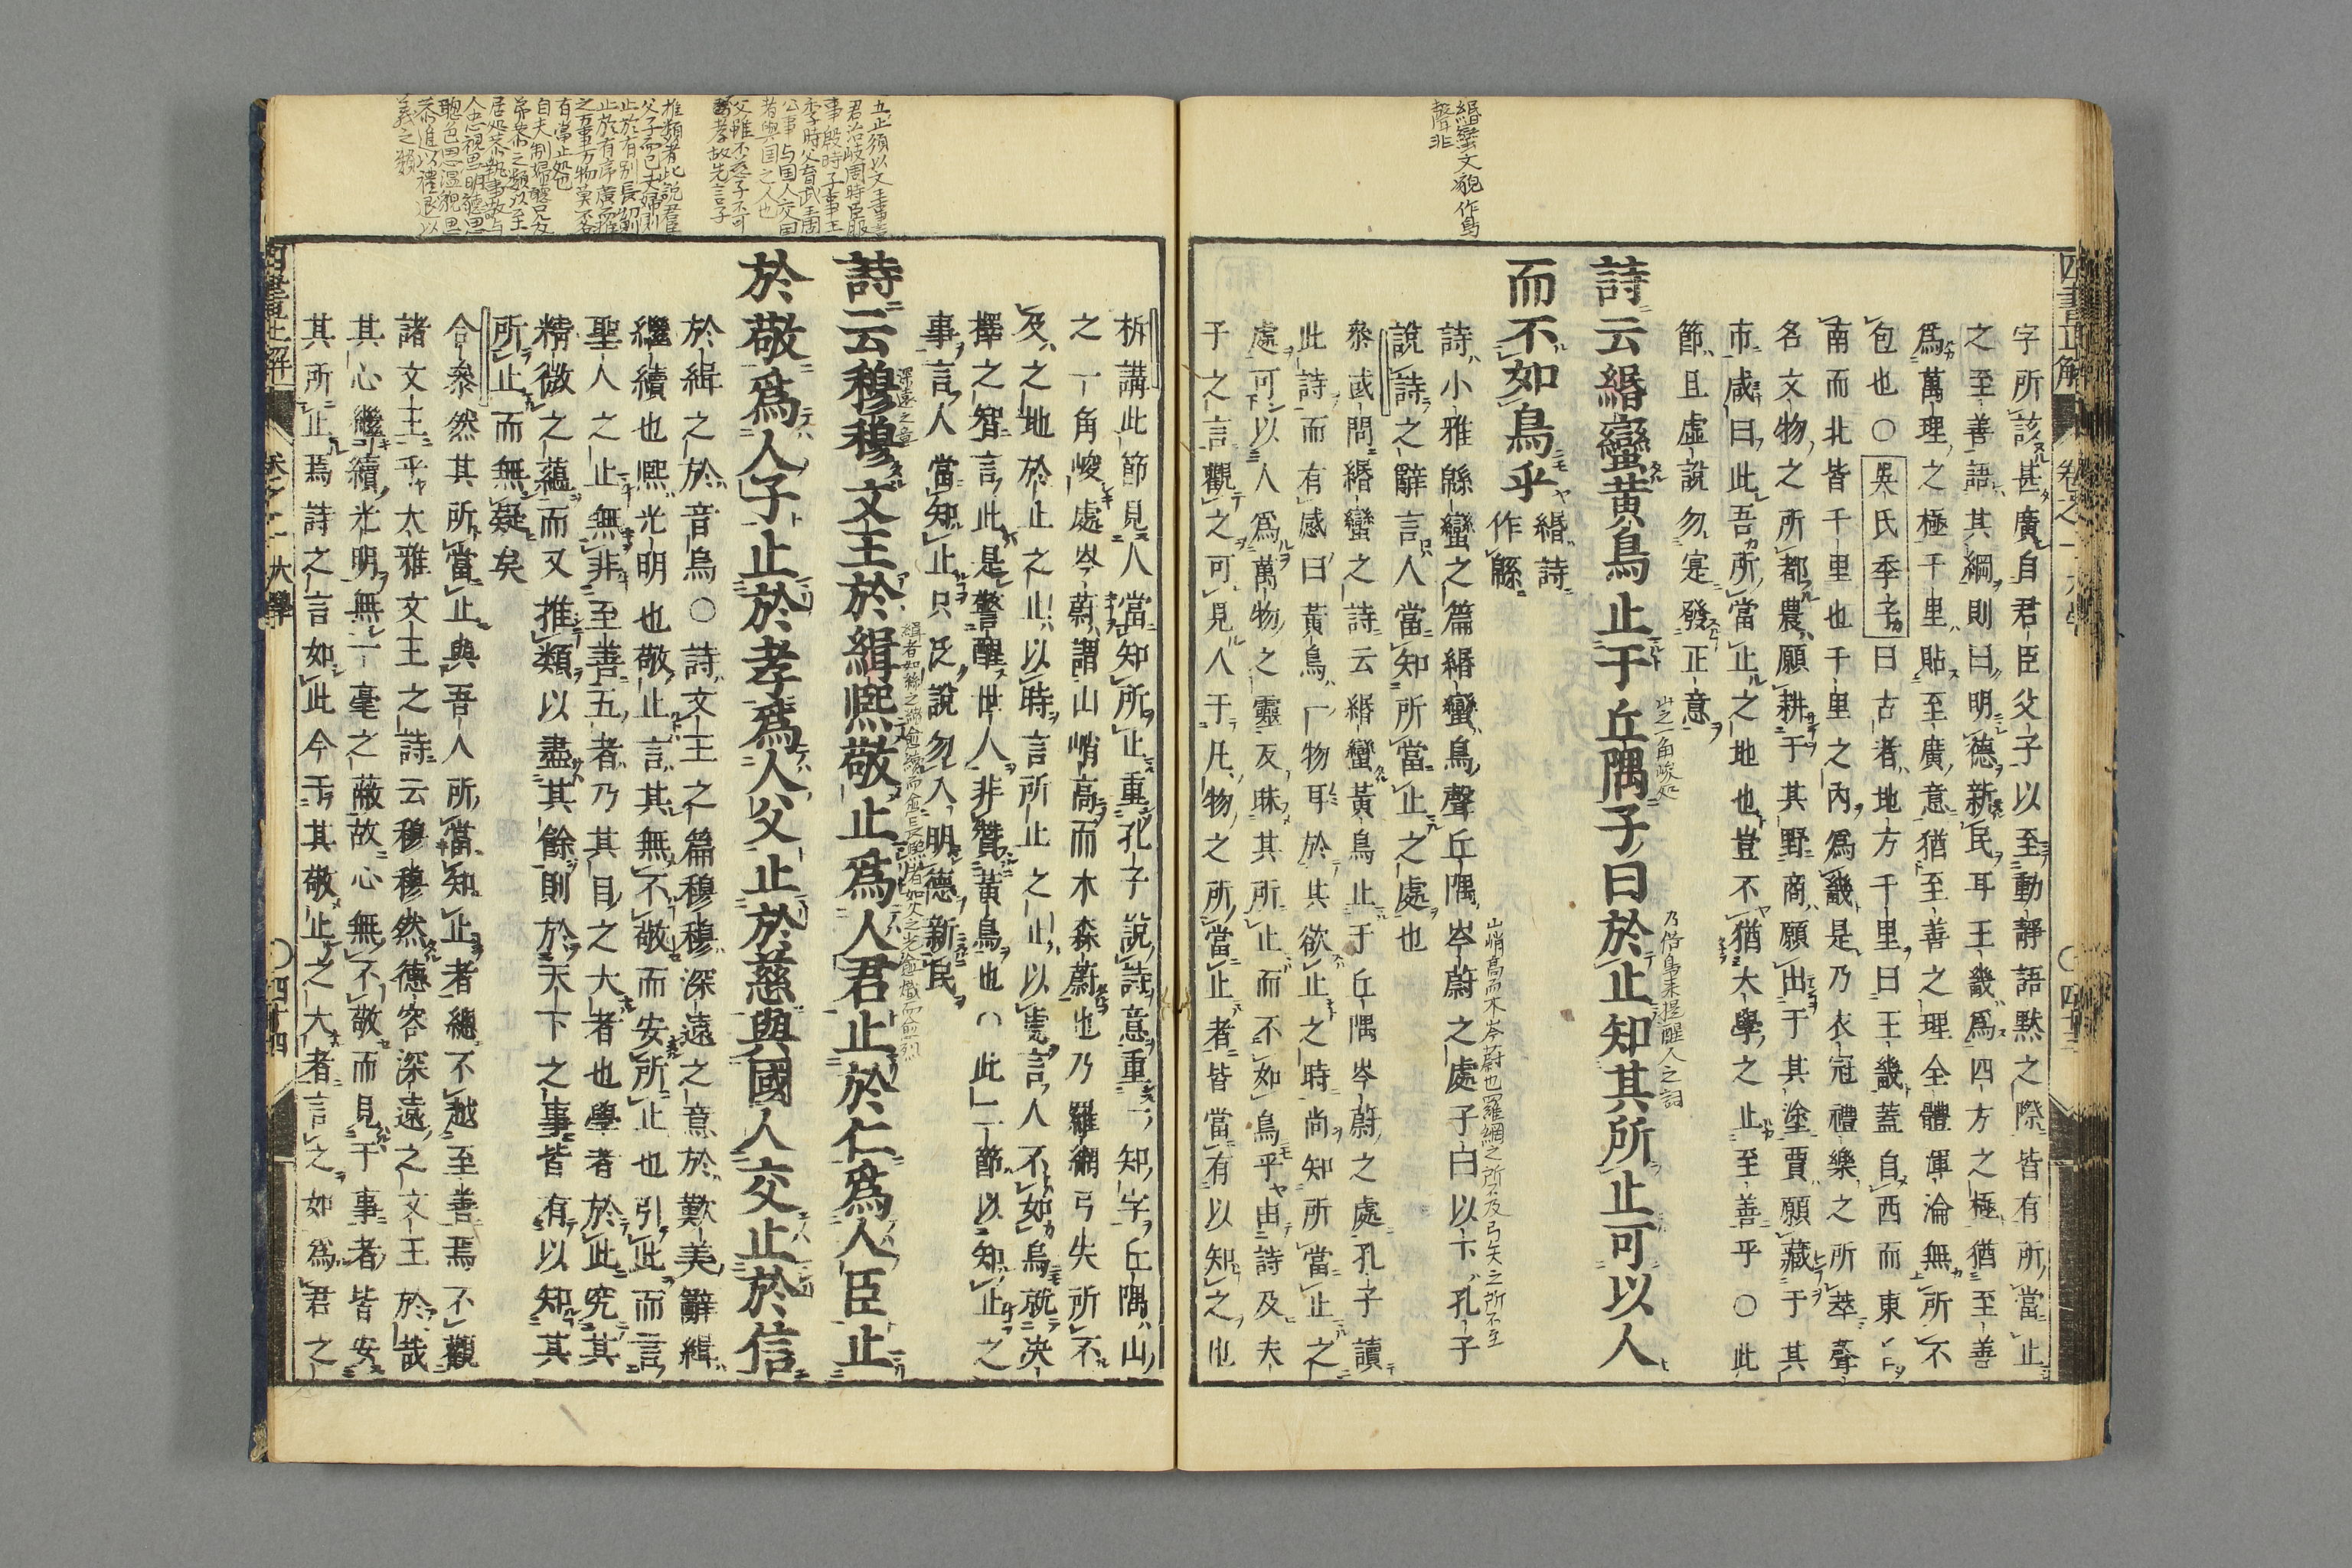 緡蠻文貌作鳥
聲非
四書正解
卷之一 大學
〇四十三
字所該甚廣自君臣父子以至動靜語默之際皆有所當止
之至善語其綱則曰明德新民耳王畿爲四方之極猶至善
爲萬理之極千里貼至廣意猶至善之理全體渾淪無所不
包也〇吳氏季子曰古者地方千里曰王畿蓋自西而東
南而北皆千里也千里之內爲畿是乃衣冠禮樂之所萃聲
名文物之所都農願耕于其野商願出于其塗賈願藏于其
市咸曰此吾所當止之地也豈不猶大學之止至善乎〇此
節且虛說勿寔發正意
詩云緡蠻黃鳥止于丘隅子曰於止知其所止可以人
丘之一角峻処
乃借鳥来提醒人之詞
而不如鳥乎緡詩
作緜
山峭高而木岑蔚也羅網之所不及弓矢之所不至
詩小雅緜蠻之篇緡蠻鳥聲丘隅岑蔚之處子曰以下孔子
說詩之辭言人當知所當止之處也
參或問緡蠻之詩云緡蠻黃鳥止于丘隅岑蔚之處孔子讀
此詩而有感曰黃鳥一物耳於其欲止之時尚知所當止之
處可以人爲萬物之靈反昧其所止而不如鳥乎由詩及夫
子之言觀之可見人于凡物之所當止者皆當有以知之也
五止須以文王事
君治岐周時臣服
事殷時子事王
季時父育武王周
公事与国人交国
者與国之人也
父雖不慈子不可
不孝故先言子
推類者此說君臣
父子而已夫婦則
止於有別長幼則
止於有序廣而推
之万事万物莫不各
有當止処也
自夫制婦
居処恭執事敬与
人忠視思明聽思
聰色思温貌思
恭進以禮退以
義之類
析講此節見人當知所止重孔子說詩意重一知字丘隅山
之一角峻處岑蔚謂山峭高而木森蔚也乃羅網弓矢所不
及之地於止之止以時言所止之止以處言人不如鳥就決
擇之智言此是警醒世人非贊黃鳥也〇此一節以知止之
事言人當知止只泛說勿入明德新民
詩云穆穆文王於緝熙敬止爲人君止於仁爲人臣止
深遠之意
緝者如絲之緝愈績而愈長熙者如火之光愈熾而愈烈
於敬爲人子止於孝爲人父止於慈與國人交止於信
於緝之於音烏〇詩文王之篇穆穆深遠之意於歎美辭緝
繼續也熙光明也敬止言其無不敬而安所止也引此而言
聖人之止無非至善五者乃其目之大者也學者於此究其
精微之蘊而又推類以盡其餘則於天下之事皆有以知其
所止而無疑矣
合參然其所當止與吾人所當知止者總不越至善焉不觀
諸文王乎大雅文王之詩云穆穆然德容深遠之文王於哉
其心繼續光明無一毫之蔽故心無不敬而見于事者皆安
其所止焉詩之言如此今于其敬止之大者言之如爲君之
四書正解
卷之一 大學
〇四十四